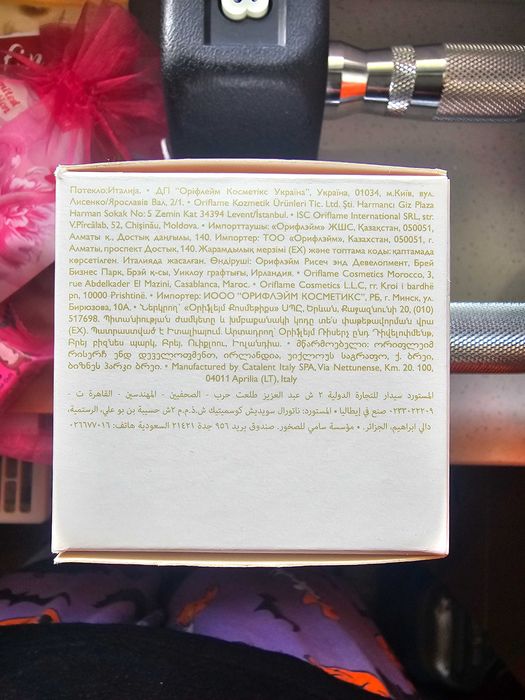 Потекло:Италија. • ДП "Оріфлейм Косметікс Україна", Україна, 01034, м.Київ, вул.
Лисенко/Ярославів Вал, 2/1. • Oriflame Kozmetik Ürünleri Tic. Ltd. Şti. Harmancı Giz Plaza
Harman Sokak No: 5 Zemin Kat 34394 Levent/İstanbul. • ISC Oriflame International SRL, str.
V.Pîrcălab, 52, Chişinău, Moldova. • Импорттаушы: «Орифлэйм» ЖШС, Қазақстан, 050051,
Алматы қ., Достық даңғылы, 140. Импортер: ТОО «Орифлэйм», Казахстан, 050051, г.
Алматы, проспект Достык, 140. Жарамдылық мерзімі (EX) және топтама коды: қаптамада
көрсетілген. Италияда жасалған. Өндіруші: Орифлэйм Рисеч энд Девелопмент, Брей
Бизнес Парк, Брэй к-сы, Уиклоу графтығы, Ирландия. • Oriflame Cosmetics Morocco, 3,
rue Abdelkader El Mazini, Casablanca, Maroc. • Oriflame Cosmetics L.L.C, rr. Kroi i bardhë
pn, 10000 Prishtinë. • Импортер: ИООО "ОРИФЛЭЙМ КОСМЕТИКС", РБ, г. Минск, ул.
Бирюзова, 10А. • Ներկրող՝ «Օրիֆլեյմ Քոսմեթիքս» ՍՊԸ, Երևան, Քաջազնունի 20, (010)
517698. Պիտանիության ժամկետը և խմբաքանակի կոդը տե՛ս փաթեթավորման վրա
(EX). Պատրաստված է Իտալիայում. Արտադրող՝ Օրիֆլեյմ Ռիսերչ ընդ Դիվելոփմենթ,
Բրեյ բիզնես պարկ, Բրեյ, Ուիքլոու, Իռլանդիա. • მწარმოებელი: ორიფლეიმ
რისერჩ ენდ დეველოფმენთ, ირლანდია, უიქლოუს საგრაფო, ქ. ბრეი,
ბიზნეს პარკი ბრეი. • Manufactured by Catalent Italy SPA, Via Nettunense, Km. 20. 100,
04011 Aprilia (LT), Italy
المستورد سيدار للتجارة الدولية ٢ ش عبد العزيز طلعت حرب - الصحفيين - المهندسين - القاهرة ت -
٠٢٣٣٠٢٢٢٠٩ صنع في إيطاليا • المستورد: ناتورال سويديش كوسميتيك ش.ذ.م.م ٢ش حسيبة بن بو علي، الرستمية،
دالي ابراهيم، الجزائر. • مؤسسة سامي للصخور. صندوق بريد ٩٥٦ جدة ٢١٤٢١ السعودية هاتف: ٠٢٦٦٧٧٠١٦